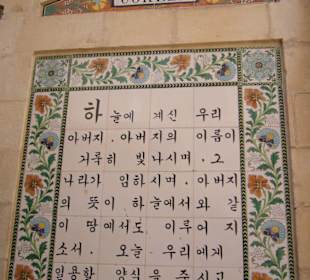 하늘에 계신 우리
아버지. 아버지의 이름이
거룩히 빛나시며. 그
나라가 임하시며. 아버지
의 뜻이 하늘에서와 같
이 땅에서도 이루어 지
소서. 오늘 우리에게
일용할 양식을 주시고